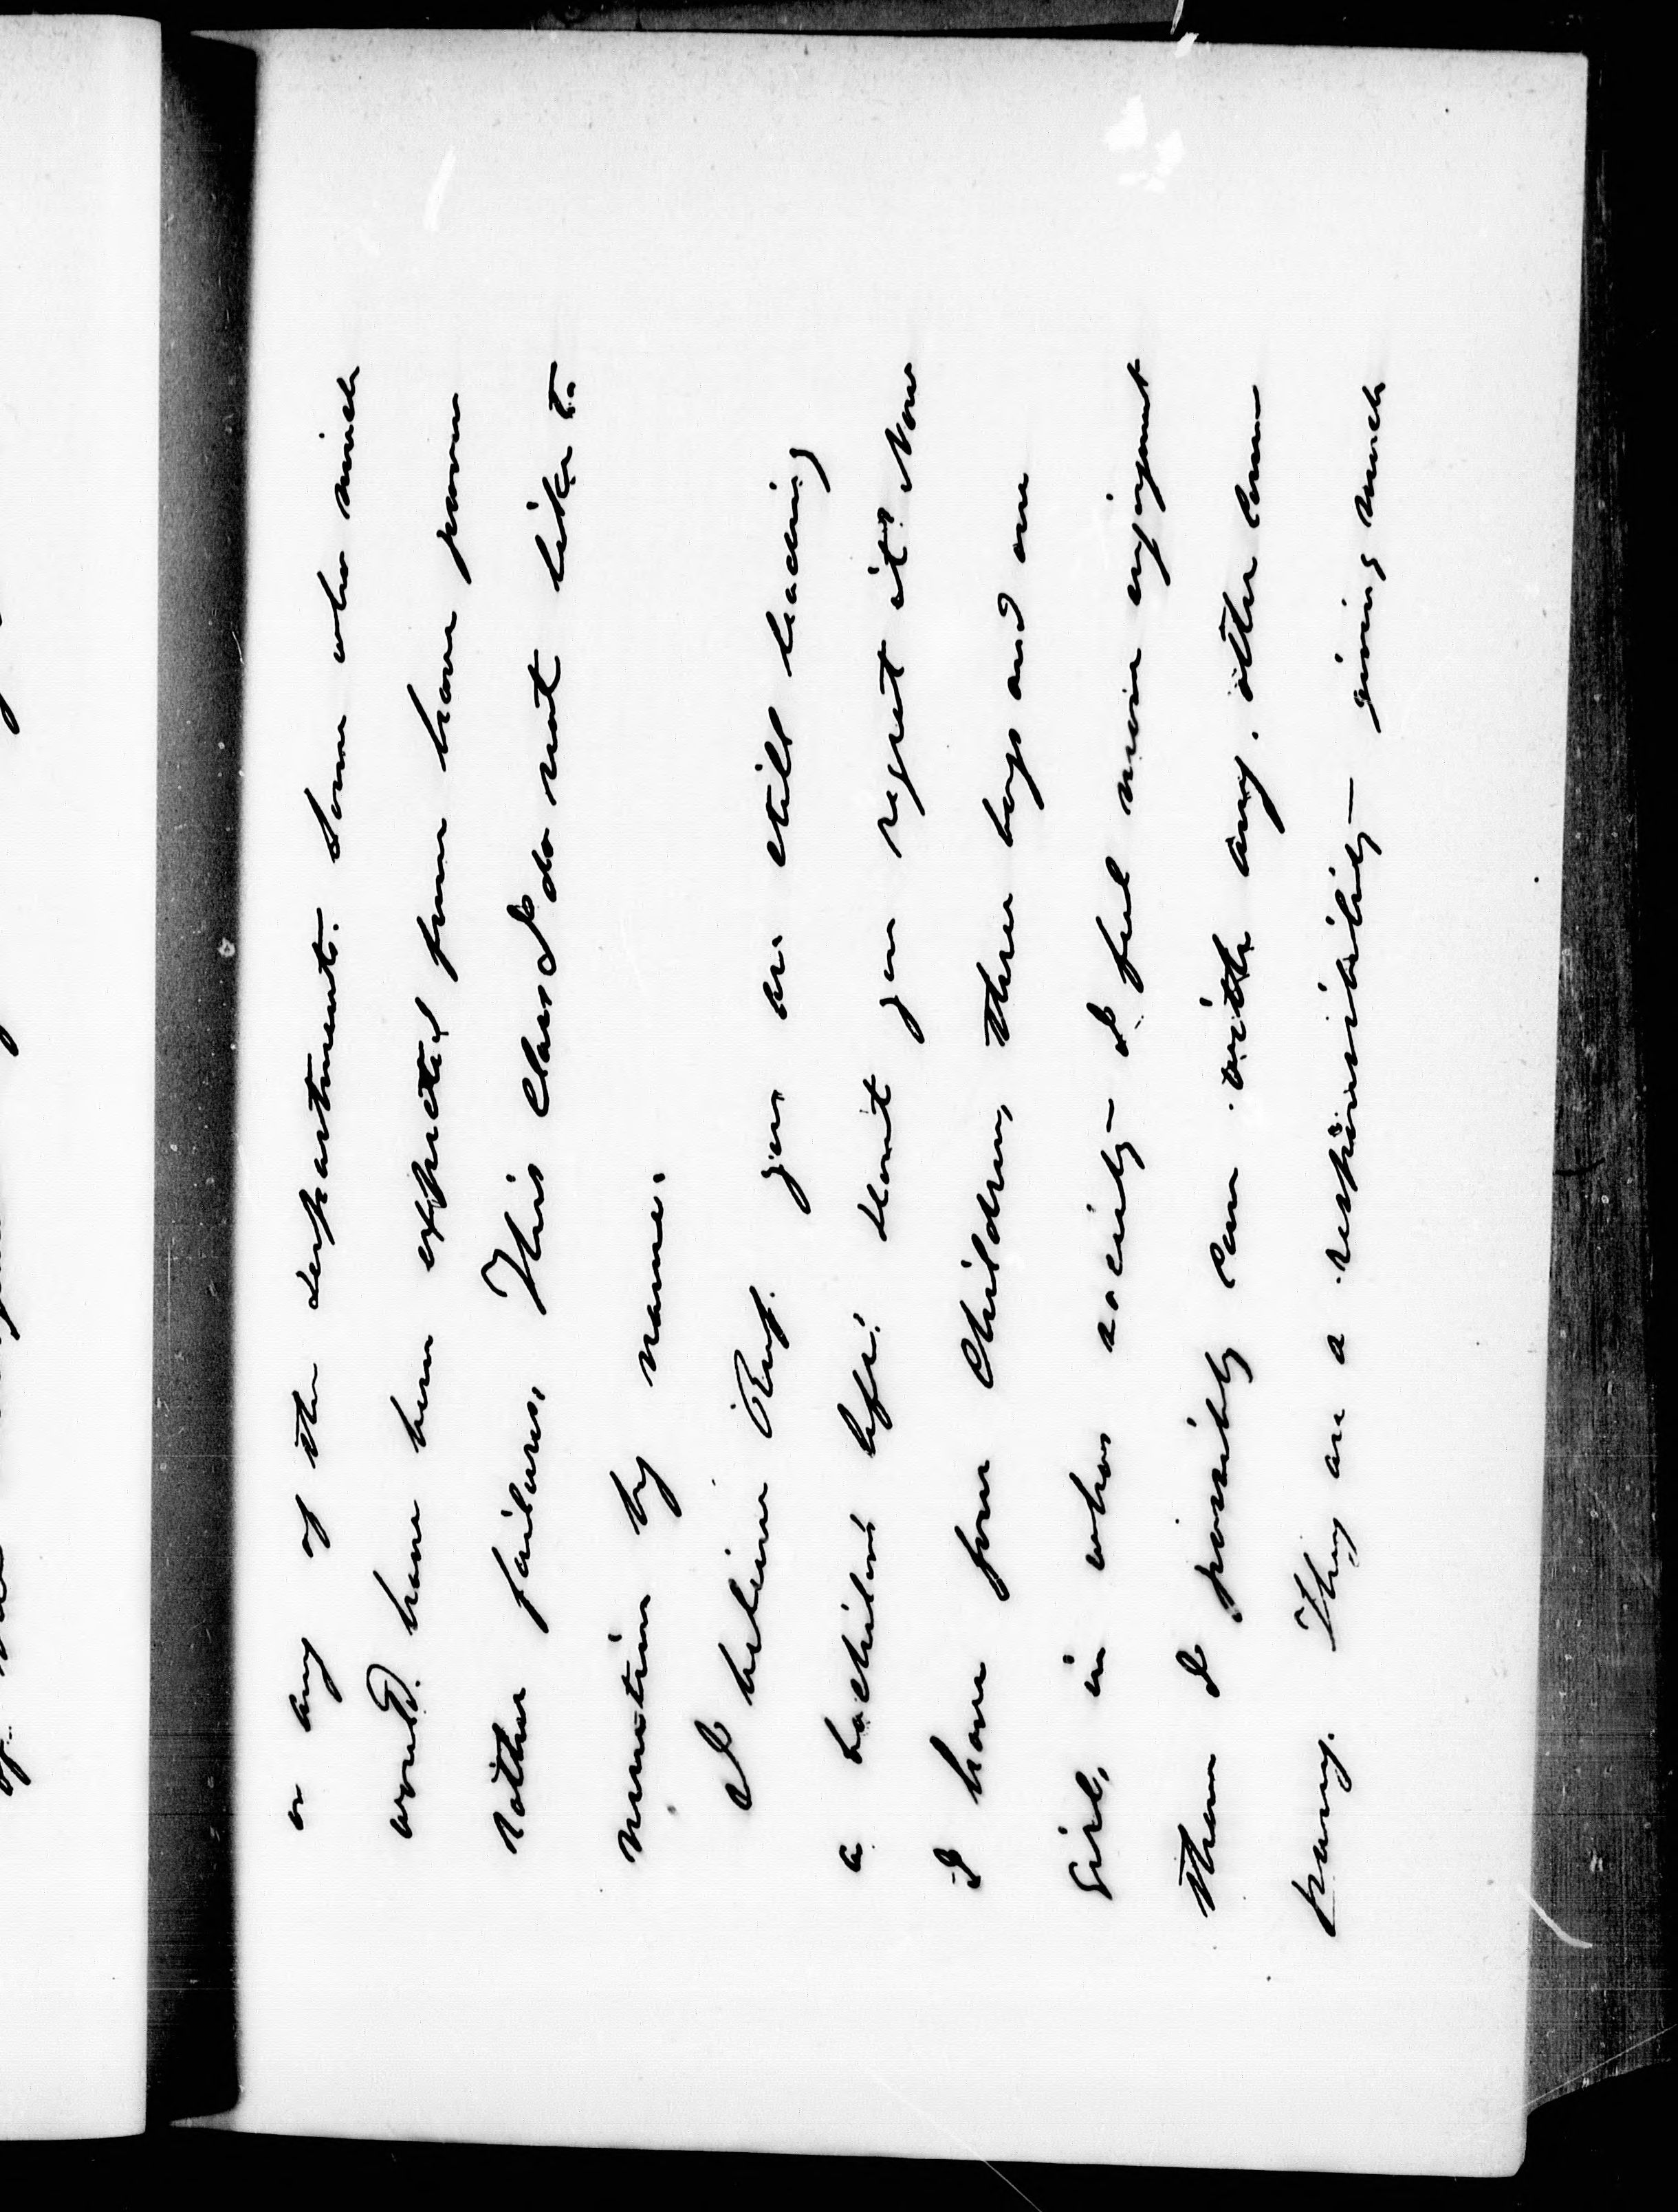 or any of the departments. Some who much
would have been expected from have proven
rather failures. This class I do not like to
mention by name.
I believe Ruf. you are still leading
a bachelors life! Dont you regret it? Now
I have four children, three boys and one
girl, in whos society I feel more enjoyment
than I possibly can with any other com
pany. They are a responsibility giving much